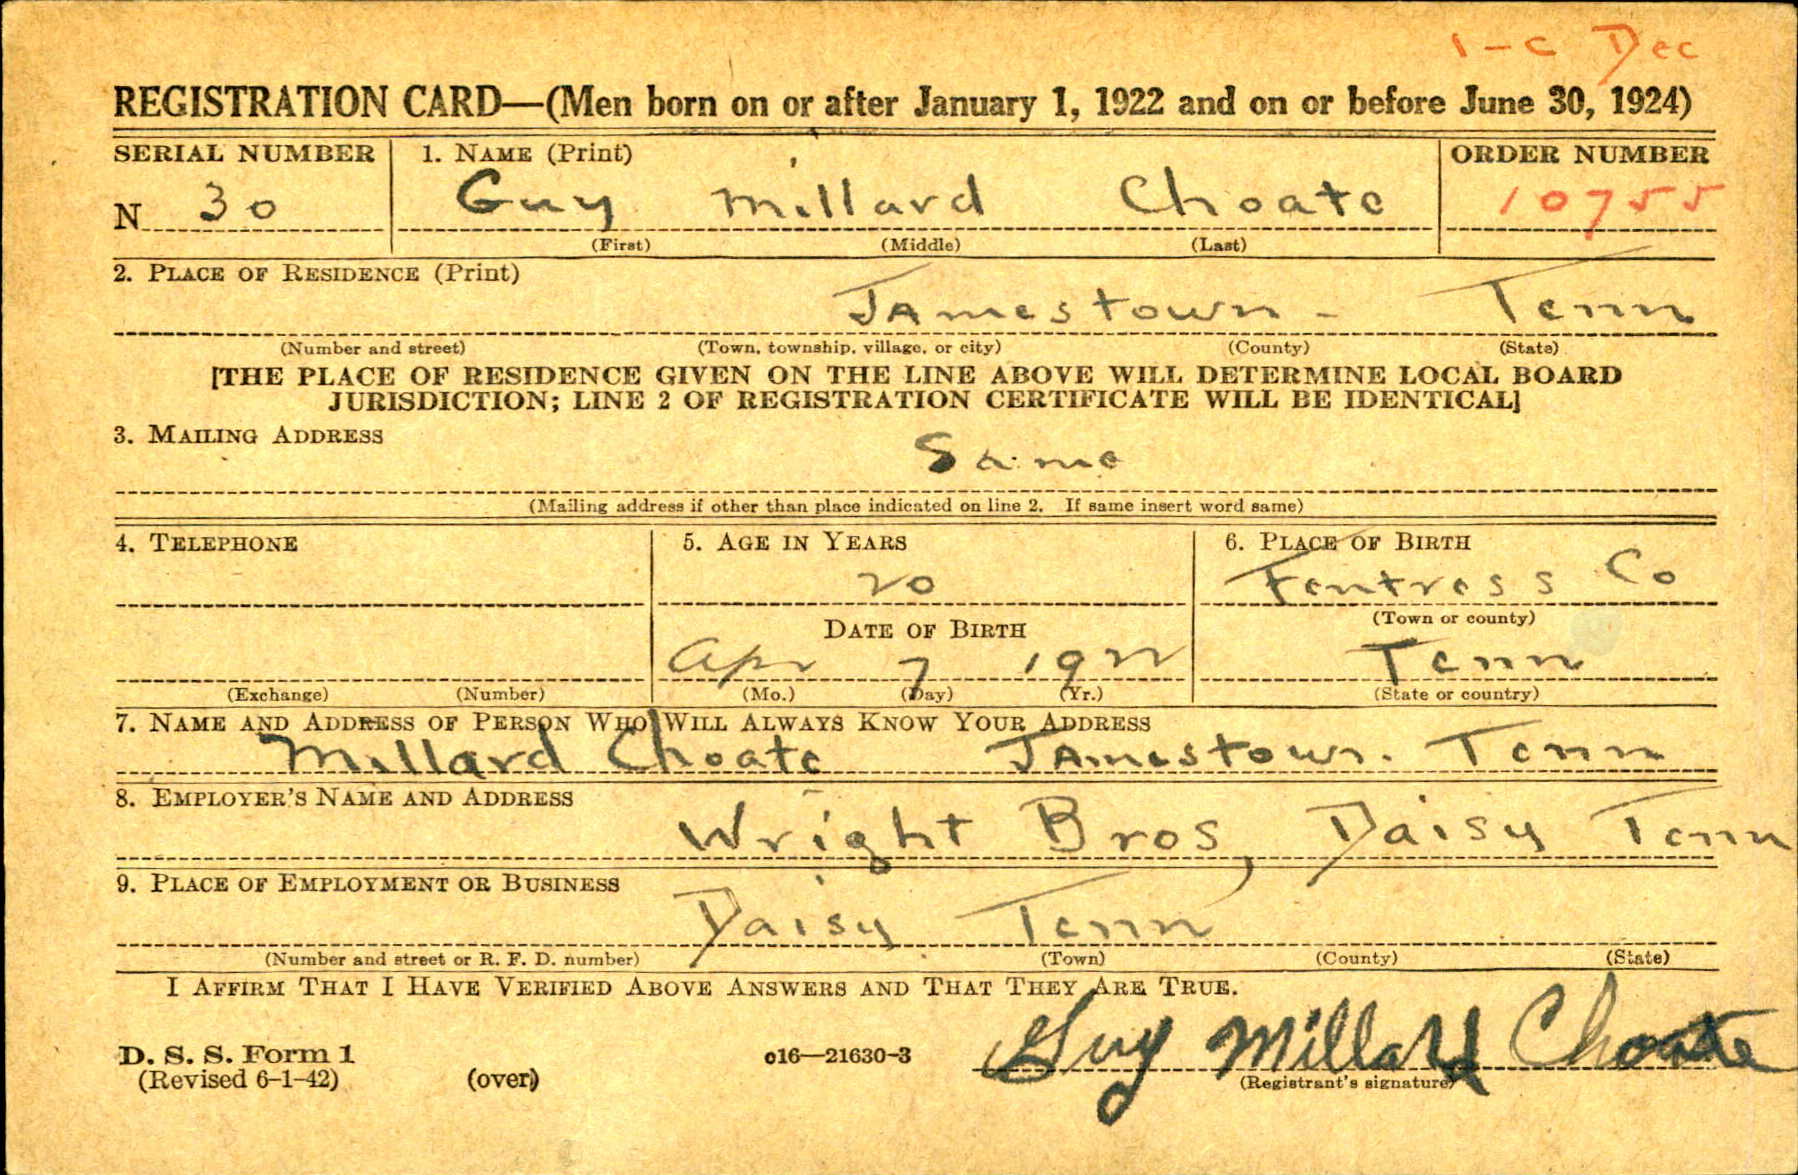 1-C Dec
REGISTRATION CARD—(Men born on or after January 1, 1922 and on or before June 30, 1924)
SERIAL NUMBER 1. NAME (Print) ORDER NUMBER
N 30 Guy Millard Choate 10755
(First) (Middle) (Last)
2. PLACE OF RESIDENCE (Print)
Jamestown - Tenn
(Number and street) (Town, township, village, or city) (County) (State)
[THE PLACE OF RESIDENCE GIVEN ON THE LINE ABOVE WILL DETERMINE LOCAL BOARD
JURISDICTION; LINE 2 OF REGISTRATION CERTIFICATE WILL BE IDENTICAL]
3. MAILING ADDRESS
Same
(Mailing address if other than place indicated on line 2. If same insert word same)
4. TELEPHONE 5. AGE IN YEARS 6. PLACE OF BIRTH
20 Fentress Co
(Town or county)
DATE OF BIRTH
Apr 7 1922 Tenn
(Exchange) (Number) (Mo.) (Day) (Yr.) (State or country)
7. NAME AND ADDRESS OF PERSON WHO WILL ALWAYS KNOW YOUR ADDRESS
Millard Choate Jamestown. Tenn
8. EMPLOYER'S NAME AND ADDRESS
Wright Bros, Daisy Tenn
9. PLACE OF EMPLOYMENT OR BUSINESS
Daisy Tenn
(Number and street or R. F. D. number) (Town) (County) (State)
I AFFIRM THAT I HAVE VERIFIED ABOVE ANSWERS AND THAT THEY ARE TRUE.
D. S. S. Form 1 c16—21630-3 Guy Millard Choate
(Revised 6-1-42) (over) (Registrant's signature)